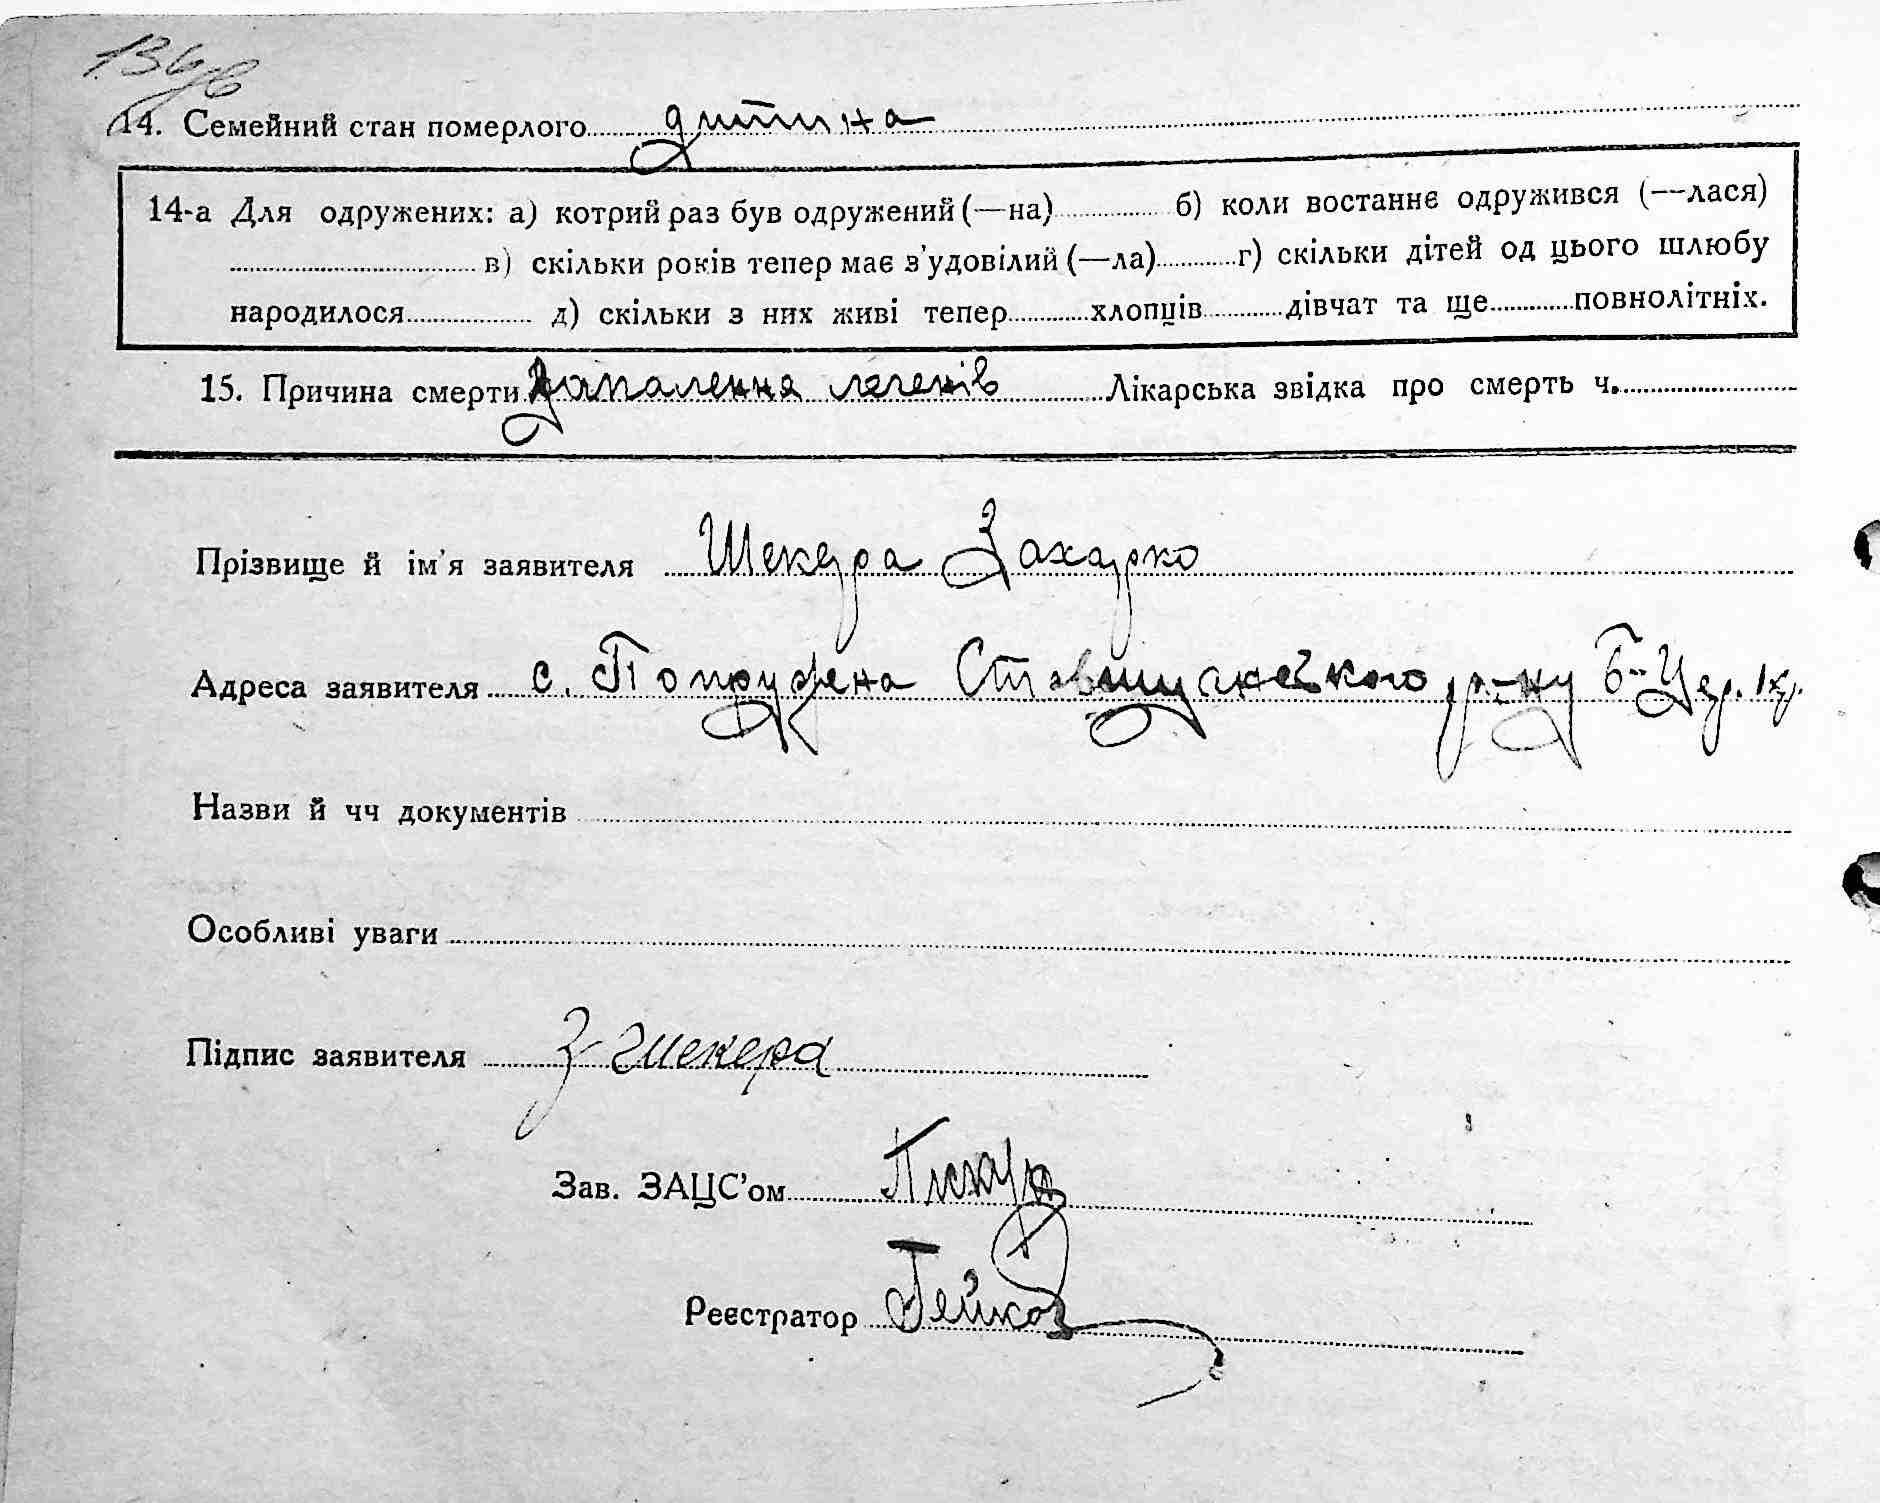 13
14. Семейний стан померлого дитина
14-а Для одружених: а) котрий раз був одружений (—на) б) коли востаннє одружився (—лася)
в) скільки років тепер має з'удовілий (—ла) г) скільки дітей од цього шлюбу
народилося д) скільки з них живі тепер хлопців дівчат та ще повнолітніх.
15. Причина смерти Запалення легенів Лікарська звідка про смерть ч.
Прізвище й ім'я заявителя Шекера Захарко
Адреса заявителя с. Попружена Ставищанського р-ну Б-Цер.
Назви й чч документів
Особливі уваги
Підпис заявителя З Шекера
Зав. ЗАЦС'ом
Реєстратор